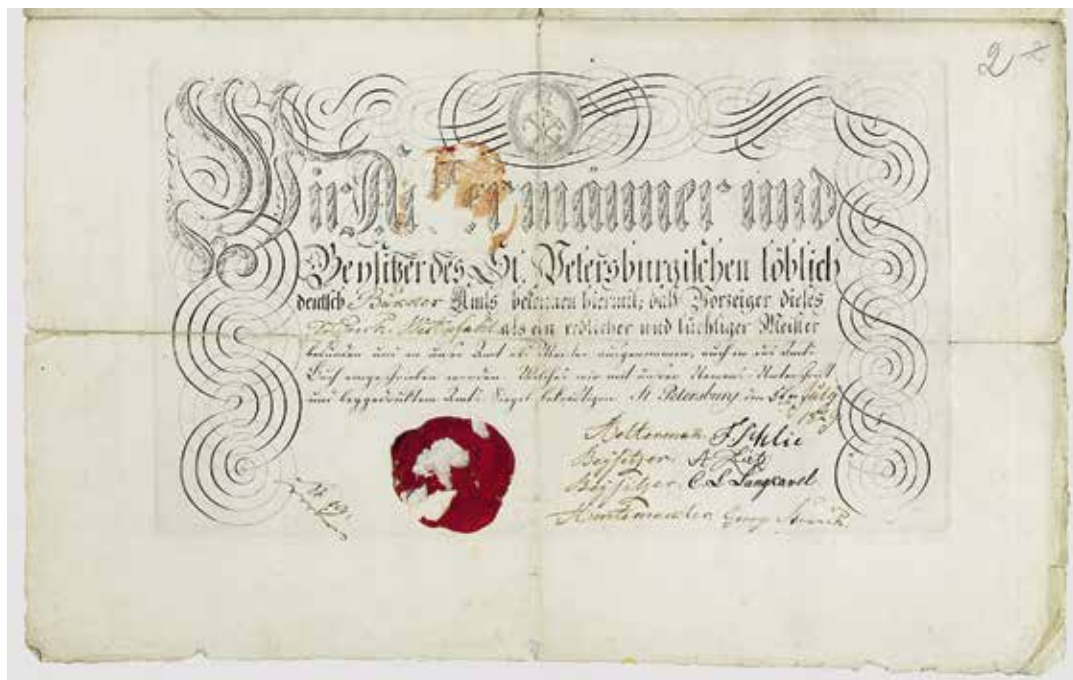 2
Wir Al ermänner und
Beysitzer des St. Petersburgischen löblich
deutsch Bäcker Amts bekennen hiermit, daß Vorzeiger dieses
als ein redlicher und tüchtiger Meister
befunden und in unser Amt als Meister aufgenommen, auch in das Amts
Buch eingeschrieben worden. Welches wir mit unser Namens Unterschrift
und beygedrucktem Amts Siegel bekräftigen. St Petersburg den July
Aeltermann. F Schlie
Beysitzer. A
Beysitzer C. L Langkavel
Georg